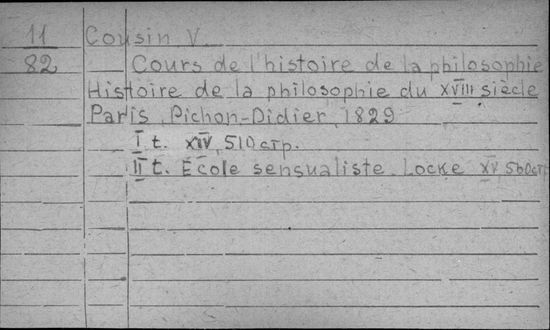 11 Cousin V.
82 Cours de l'histoire de la philosophie
Histoire de la philosophie du XVIII siècle
Paris, Pichon-Didier, 1829
I t. XIV, 510 стр.
II t. École sensualiste. Locke XV, 560 стр